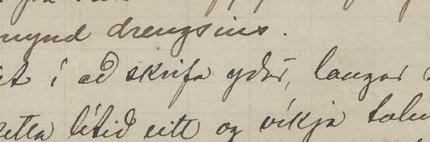 mynd drengsins.
í að skrifa yður, langar
lítið eitt og víkja